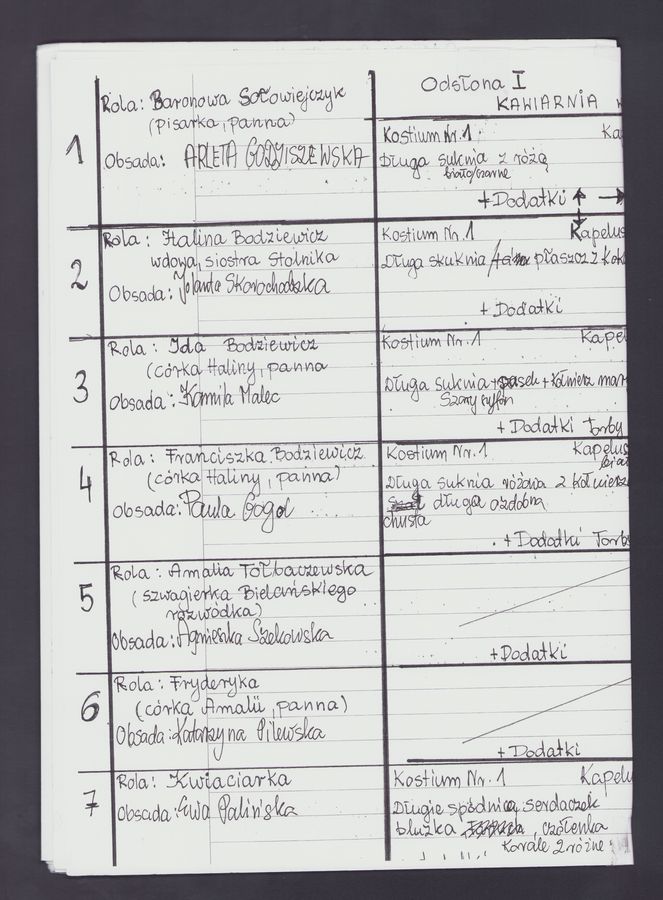 Odsłona I
KAWIARNIA
1
Rola: Baronowa Sołowiejczyk
(pisarka, panna)
Obsada: ARLETA GODZISZEWSKA
Kostium Nr. 1 Ka
Długa suknia z różą
biało/czarne
+ Dodatki
2
Rola: Halina Bodziewicz
wdowa, siostra Stolnika
Obsada: Jolanta Skorochodzka
Kostium Nr. 1 Kapelus
Długa skuknia płaszcz z kok
+ Dodatki
3
Rola: Ida Bodziewicz
(córka Haliny, panna
Obsada: Kamila Malec
Kostium Nr. 1 Kape
Długa suknia + pasek + kołnierz mar
Szary
+ Dodatki Torby
4
Rola: Franciszka Bodziewicz
(córka Haliny, panna)
Obsada: Paula Gogol
Kostium Nr. 1 Kapelus
biał
Długa suknia różowa z kołnierz
długa ozdobna
chusta
+ Dodatki Torb
5
Rola: Amalia Tołbaczewska
(szwagierka Bielańskiego
rozwódka)
Obsada: Agnieszka Szekowska
+ Dodatki
6
Rola: Fryderyka
(córka Amalii, panna)
Obsada: Katarzyna Pilewska
+ Dodatki
7
Rola: Kwiaciarka
Obsada: Ewa Palińska
Kostium Nr. 1 Kapelu
Długie spódnica, serdaczek
bluzka, czółenka
Korale 2 różne